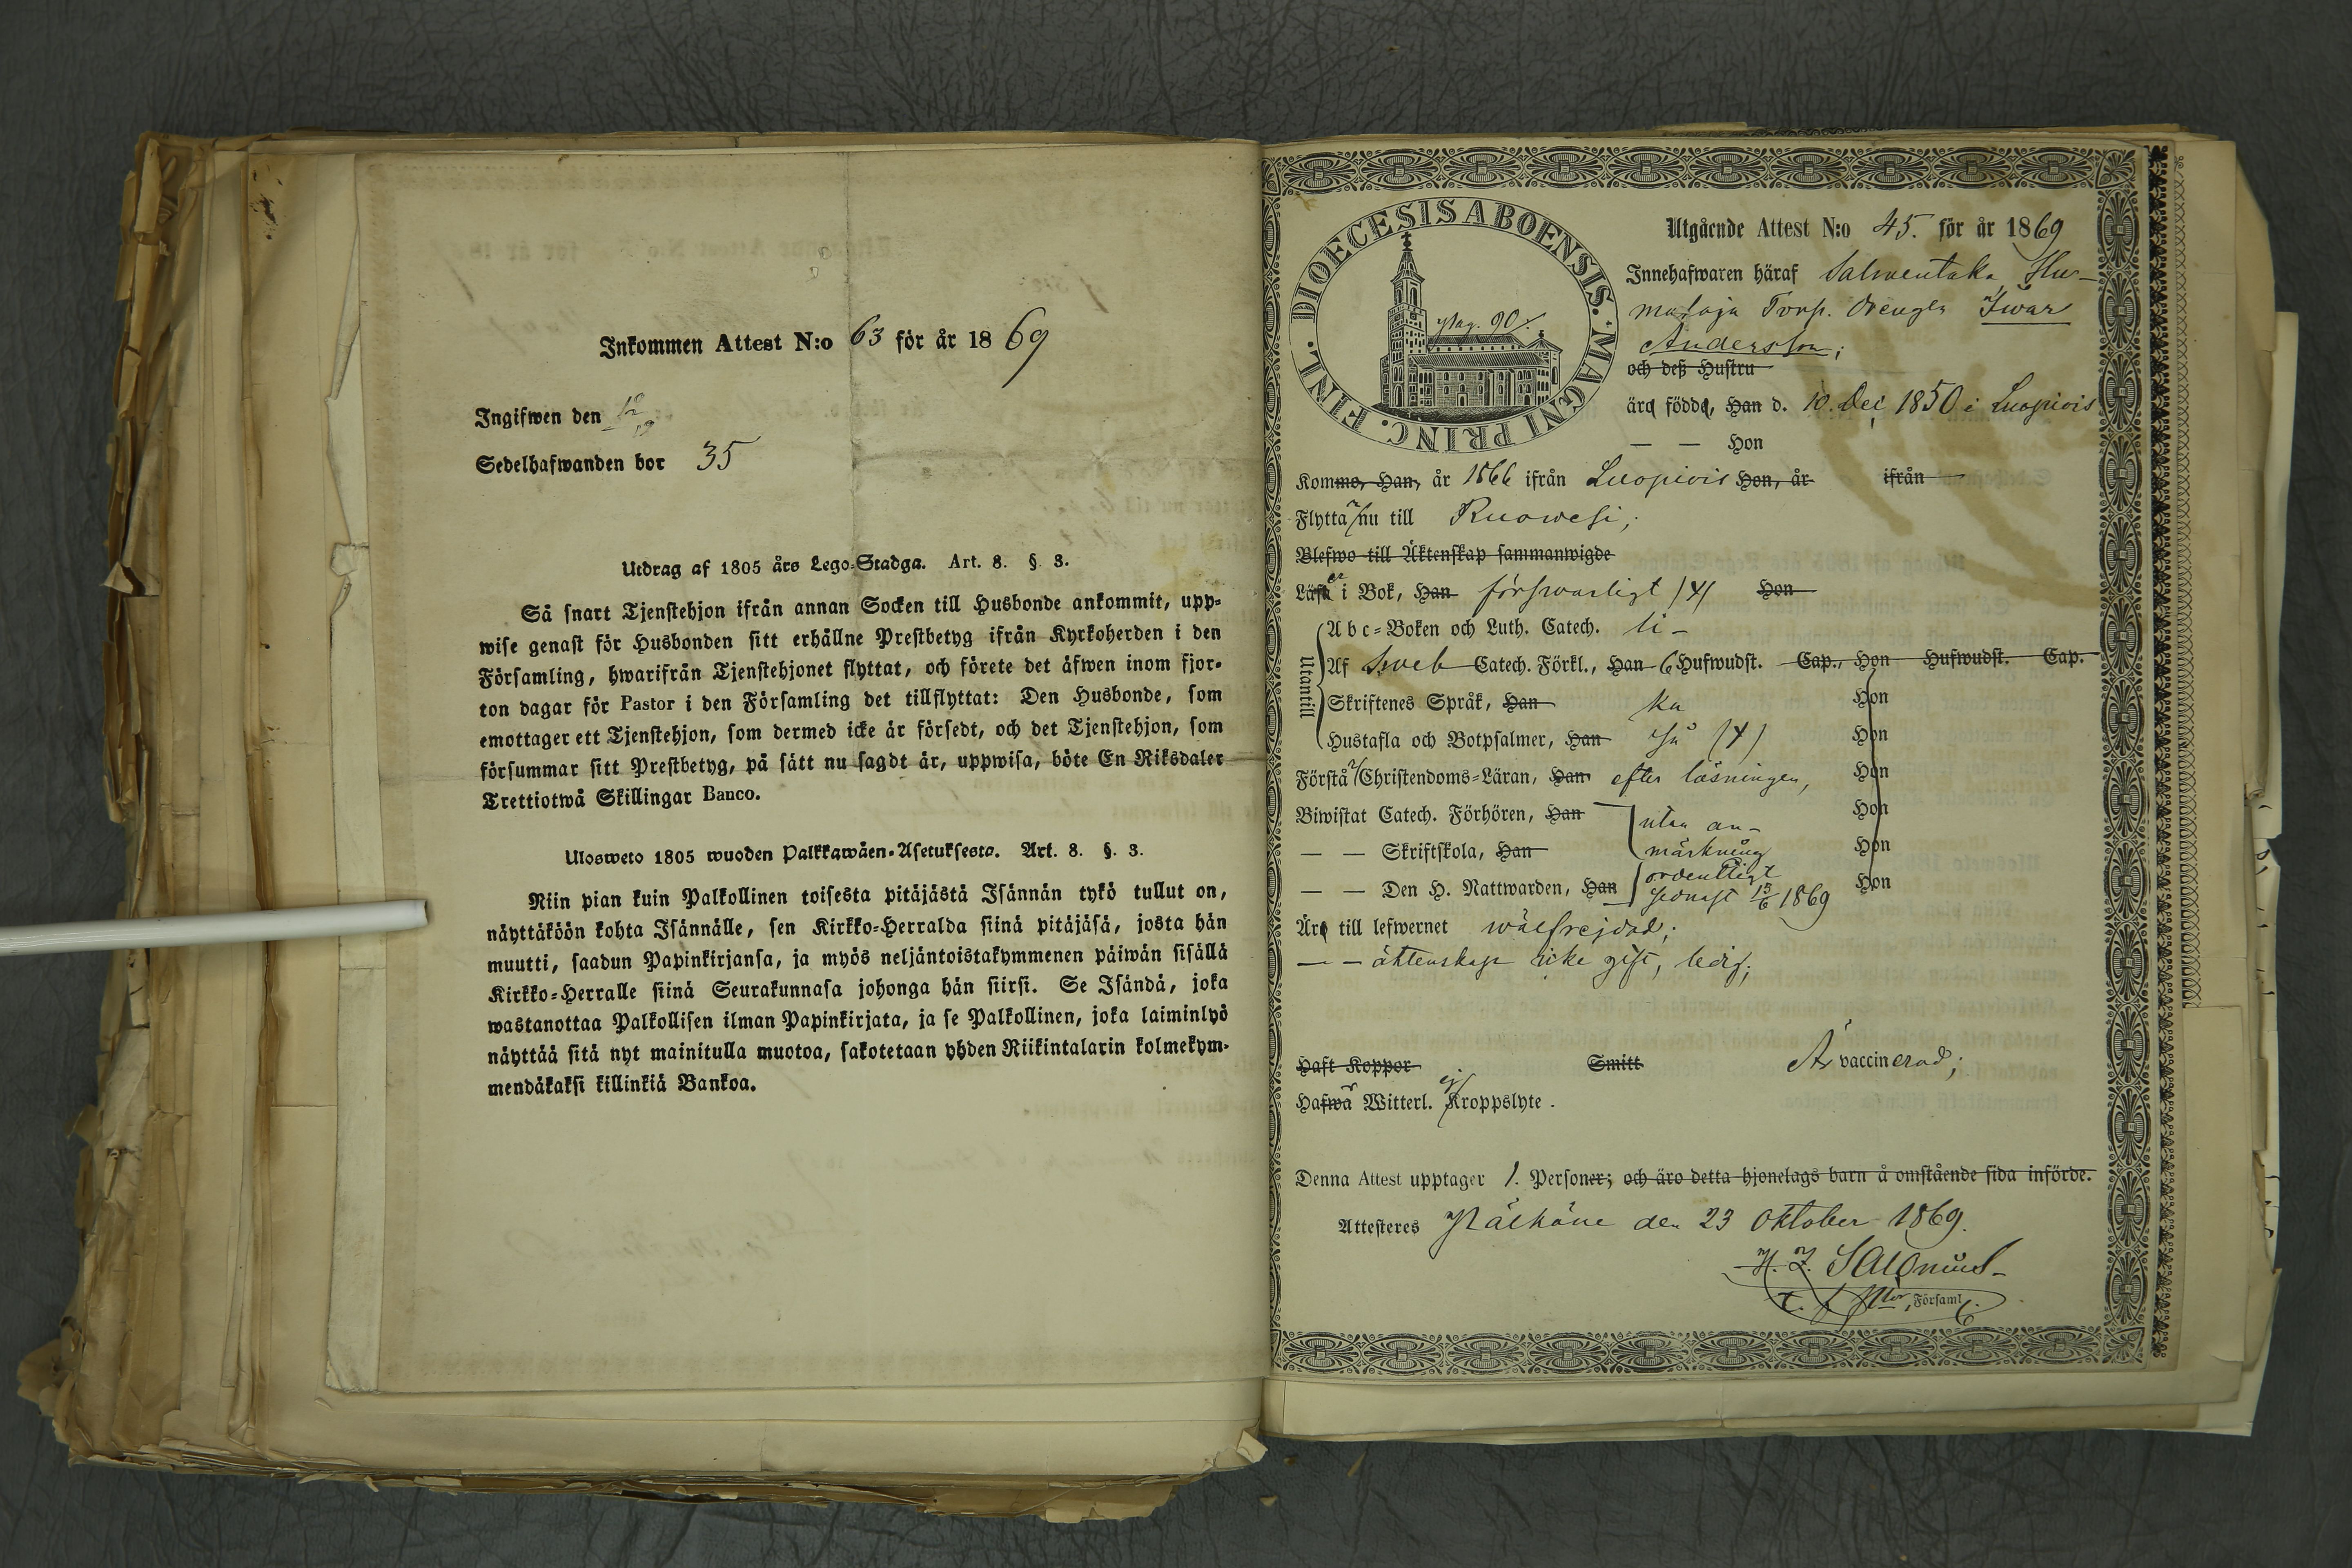 Inkommen Attest N:o 63 för år 1869
Ingifwen den
Sedelhafwanden bor 35
Utdrag af 1805 års Lego-Stadga. Art. 8. §. 3.
Så snart Tjenstehjon ifrån annan Socken till Husbonde ankommit, upp-
wise genast för Husbonden sitt erhållne Prestbetyg ifrån Kyrkoherden i den
Församling, hwarifrån Tjenstehjonet flyttat, och förete det äfwen inom fjor-
ton dagar för Pastor i den Församling det tillflyttat: Den Husbonde, som
emottager ett Tjenstehjon, som dermed icke är försedt, och det Tjenstehjon, som
försummar sitt Prestbetyg, på sätt nu sagdt är, uppwisa, böte En Riksdaler
Trettiotwå Skillingar Banco.
Ulosweto 1805 wuoden Palkkawäen-Asetuksesta. Art. 8. §. 3.
Niin pian kuin Palkollinen toisesta pitäjästä Isännän tykö tullut on,
näyttäköön kohta Isännälle, sen Kirkko-Herralda siinä pitäjäsä, josta hän
muutti, saadun Papinkirjansa, ja myös neljäntoistakymmenen päiwän sisällä
Kirkko-Herralle siinä Seurakunnasa johonga hän siirsi. Se Isändä, joka
wastanottaa Palkollisen ilman Papinkirjata, ja se Palkollinen, joka laiminlyö
näyttää sitä nyt mainitulla muotoa, sakotetaan yhden Riikintalarin kolmekym-
mendäkaksi killinkiä Bankoa.
DIOECESIS ABOENSIS. MAGNI PRINC. FINL.
pag. 90.
Utgående Attest N:o 45. för år 1869
Innehafwaren häraf Salmentaka, Hu-
malaja Torp. Drengen Iwar
Andersson;
och deß Hustru
äro födde, Han d. 10. Dec 1850 i Luopiois
— — Hon
Komme, Han, år 1866 ifrån Luopiois Hon, år ifrån
Flyttar nu till Ruowesi;
Blefwo till Äktenskap sammanwigde
Läser i Bok, Han förswarligt (4) Hon
Utantill
Abc-Boken och Luth. Catech. li-
Af Sweb Catech. Förkl., Han 6 Hufwudst. Cap., Hon Hufwudst. Cap.
Skriftenes Språk, Han ka Hon
Hustafla och Botpsalmer, Han så (4) Hon
Förstår Christendoms-Läran, Han efter läsningen, Hon
Biwistat Catech. Förhören, Han utan an- Hon
— — Skriftskola, Han märkning Hon
— — Den H. Nattwarden, Han ordentligt Hon
sednast 13/6 1869
Äro till lefwernet wälfrejdad;
— — äktenskap icke gift, ledig;
Haft Koppor Smitt Är vaccinerad;
Hafwa Witterl. ej Kroppslyte.
Denna Attest upptager 1. Personer; och äro detta hjonelags barn å omstående sida införde.
Attesteres Pälkäne den 23 Oktober 1869.
Församl.